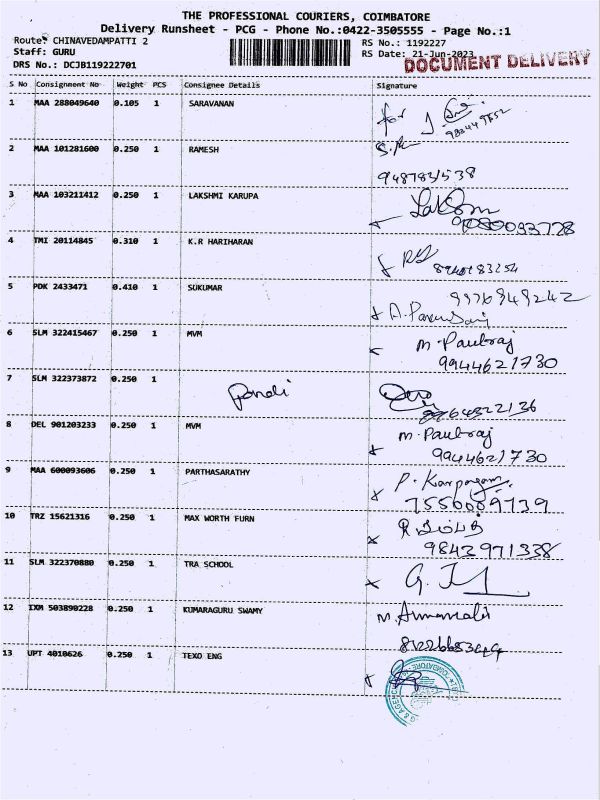 THE PROFESSIONAL COURIERS, COIMBATORE
Delivery Runsheet - PCG - Phone No.:0422-3505555 - Page No.:1
Route: CHINAVEDAMPATTI 2
RS No.: 1192227
Staff: GURU
RS Date: 21-Jun-2023
DOCUMENT DELIVERY
DRS No.: DCJB119222701
S No Consignment No Weight PCS Consignee Details Signature
1 MAA 288049640 0.105 1 SARAVANAN for
2 MAA 101281600 0.250 1 RAMESH
9487831538
3 MAA 103211412 0.250 1 LAKSHMI KARUPA
9080093778
4 TMI 20114845 0.310 1 K.R HARIHARAN
5 PDK 2433471 0.410 1 SUKUMAR 9976849242
6 SLM 322415467 0.250 1 MVM M. Paulraj
9944621730
7 SLM 322373872 0.250 1
8 DEL 901203233 0.250 1 MVM M. Paulraj
9944621730
9 MAA 600093606 0.250 1 PARTHASARATHY P. Karpagam
7550009739
10 TRZ 15621316 0.250 1 MAX WORTH FURN
9842971338
11 SLM 322370880 0.250 1 TRA SCHOOL
12 IXM 503890228 0.250 1 KUMARAGURU SWAMY
13 UPT 4010626 0.250 1 TEXO ENG